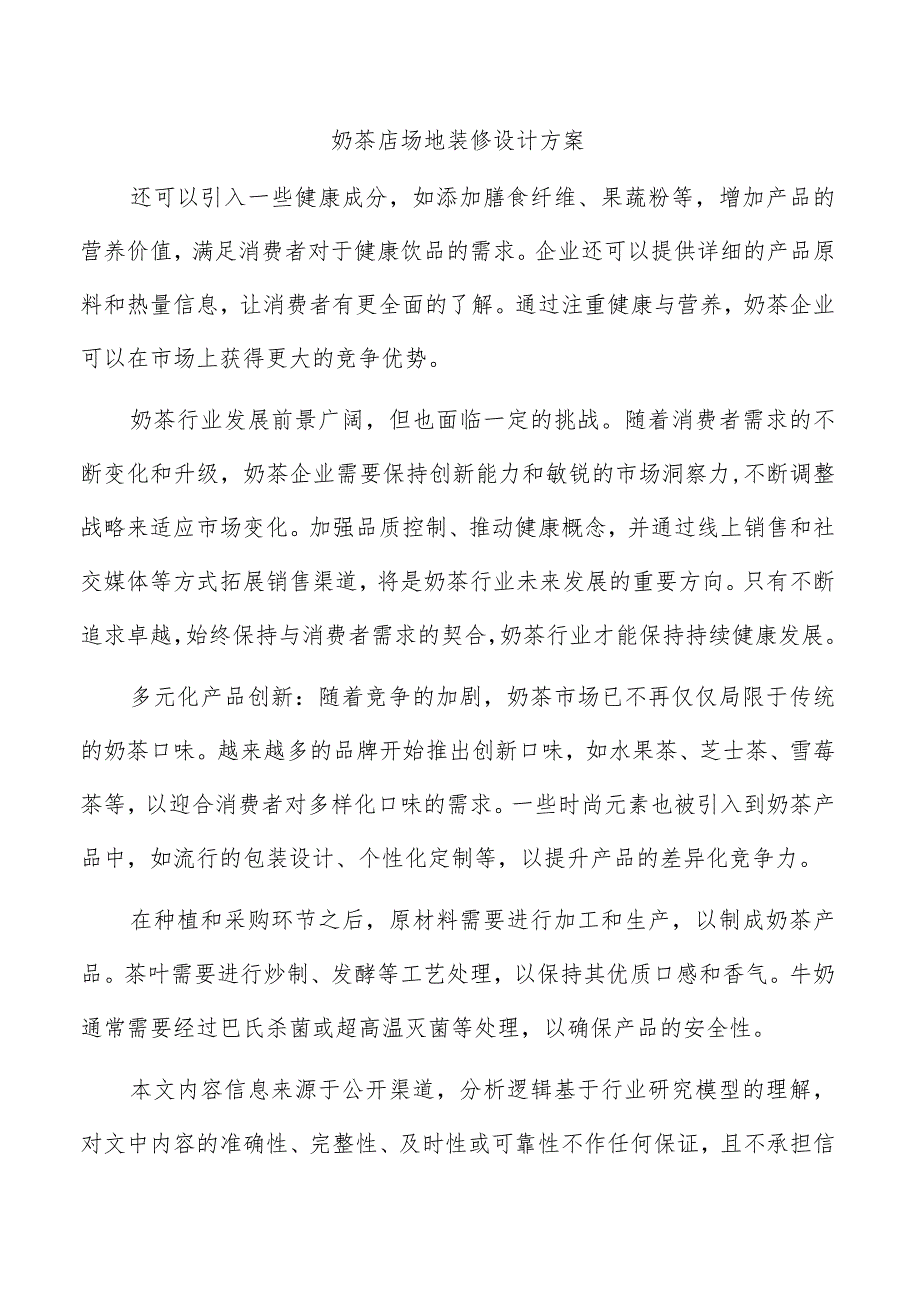 奶茶店场地装修设计方案
还可以引入一些健康成分，如添加膳食纤维、果蔬粉等，增加产品的
营养价值，满足消费者对于健康饮品的需求。企业还可以提供详细的产品原
料和热量信息，让消费者有更全面的了解。通过注重健康与营养，奶茶企业
可以在市场上获得更大的竞争优势。
奶茶行业发展前景广阔，但也面临一定的挑战。随着消费者需求的不
断变化和升级，奶茶企业需要保持创新能力和敏锐的市场洞察力,不断调整
战略来适应市场变化。加强品质控制、推动健康概念，并通过线上销售和社
交媒体等方式拓展销售渠道，将是奶茶行业未来发展的重要方向。只有不断
追求卓越,始终保持与消费者需求的契合,奶茶行业才能保持持续健康发展。
多元化产品创新：随着竞争的加剧，奶茶市场已不再仅仅局限于传统
的奶茶口味。越来越多的品牌开始推出创新口味，如水果茶、芝士茶、雪莓
茶等，以迎合消费者对多样化口味的需求。一些时尚元素也被引入到奶茶产
品中，如流行的包装设计、个性化定制等，以提升产品的差异化竞争力。
在种植和采购环节之后，原材料需要进行加工和生产，以制成奶茶产
品。茶叶需要进行炒制、发酵等工艺处理，以保持其优质口感和香气。牛奶
通常需要经过巴氏杀菌或超高温灭菌等处理，以确保产品的安全性。
本文内容信息来源于公开渠道，分析逻辑基于行业研究模型的理解，
对文中内容的准确性、完整性、及时性或可靠性不作任何保证，且不承担信